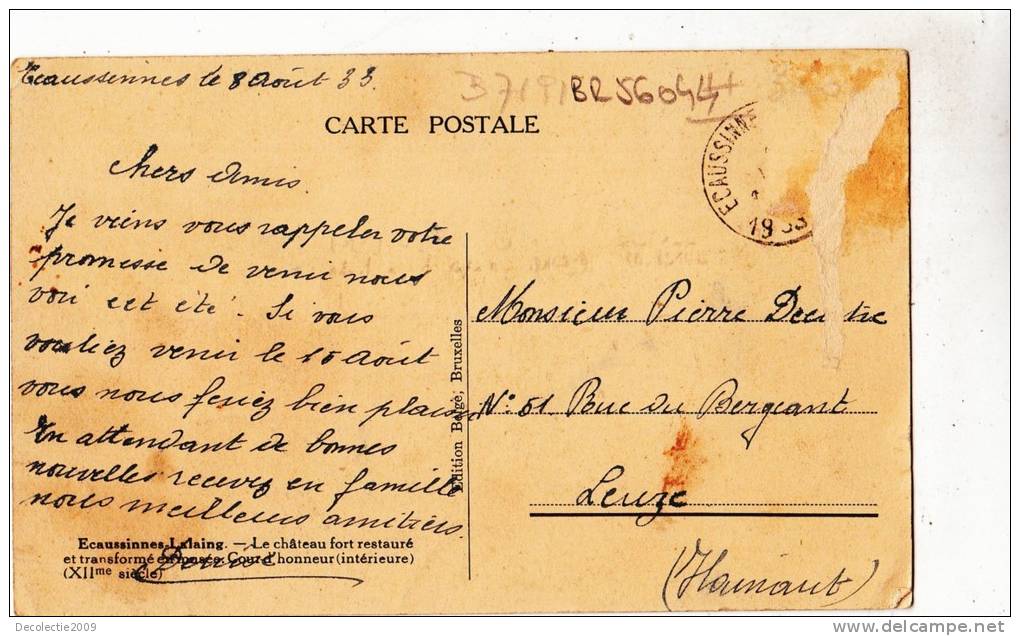 Ecaussennes le 8 Août 33.
BR56044
CARTE POSTALE
ECAUSSINNE
19 33
Chers Amis.
Je viens vous rappeler votre
promesse de venir nous
voir cet été. Si vous
vouliez venir le 15 Août
vous nous feriez bien plaisir
En attendant de bonnes
nouvelles recevez en famille
nous meilleurs amitiés.
Ecaussinnes-Lalaing. — Le château fort restauré
et transformé en musée. Cour d'honneur (intérieure)
(XIIme siècle)
Edition Belge, Bruxelles
Monsieur Pierre
No 51 Rue du Bergeant
Leuze
(Hainaut)
Decolectie2009
delcampe.net